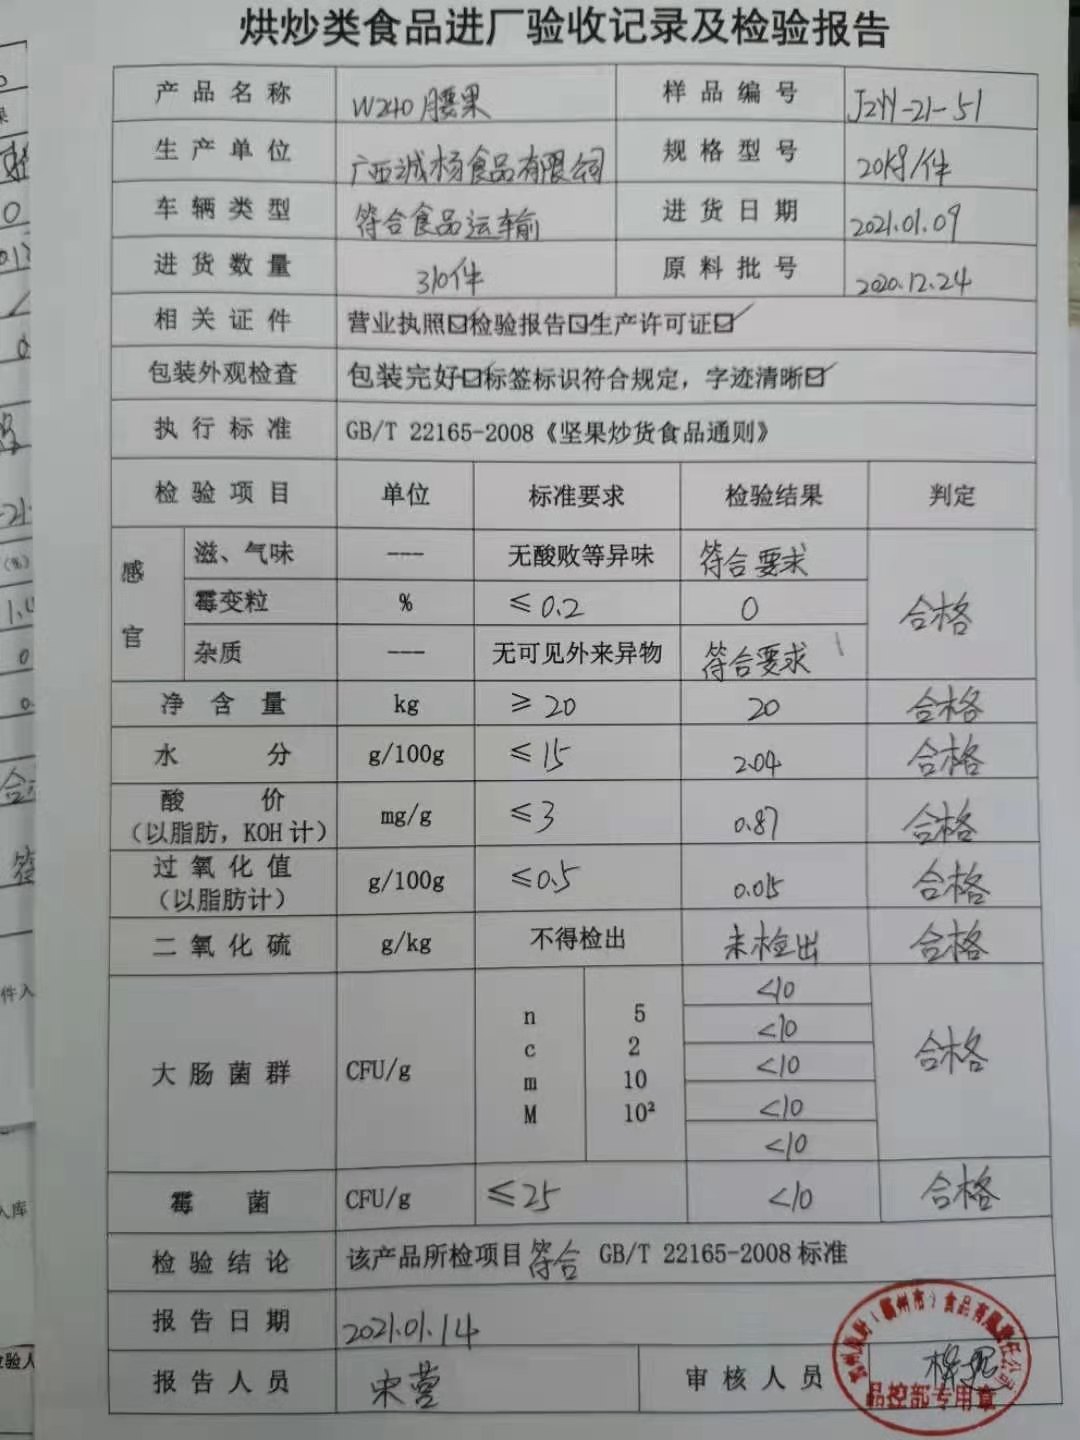 烘炒类食品进厂验收记录及检验报告
产品名称 W240腰果 样品编号 JZYY-21-51
生产单位 广西诚杨食品有限公司 规格型号 20kg/件
车辆类型 符合食品运输 进货日期 2021.01.09
进货数量 310件 原料批号 2020.12.24
相关证件 营业执照☑检验报告☑生产许可证☑
包装外观检查 包装完好☑标签标识符合规定，字迹清晰☑
执行标准 GB/T 22165-2008《坚果炒货食品通则》
检验项目 单位 标准要求 检验结果 判定
感官 滋、气味 --- 无酸败等异味 符合要求 合格
霉变粒 % ≤0.2 0
杂质 --- 无可见外来异物 符合要求
净含量 kg ≥20 20 合格
水分 g/100g ≤15 2.04 合格
酸价
（以脂肪，KOH计） mg/g ≤3 0.87 合格
过氧化值
（以脂肪计） g/100g ≤0.5 0.015 合格
二氧化硫 g/kg 不得检出 未检出 合格
大肠菌群 CFU/g 合格
n 5
c 2
m 10
M 10²
<10
<10
<10
<10
<10
霉菌 CFU/g ≤25 <10 合格
检验结论 该产品所检项目符合 GB/T 22165-2008标准
报告日期 2021.01.14
报告人员 宋营 审核人员
（霸州市）食品有限责任公司
品控部专用章
件入
入库
检验人